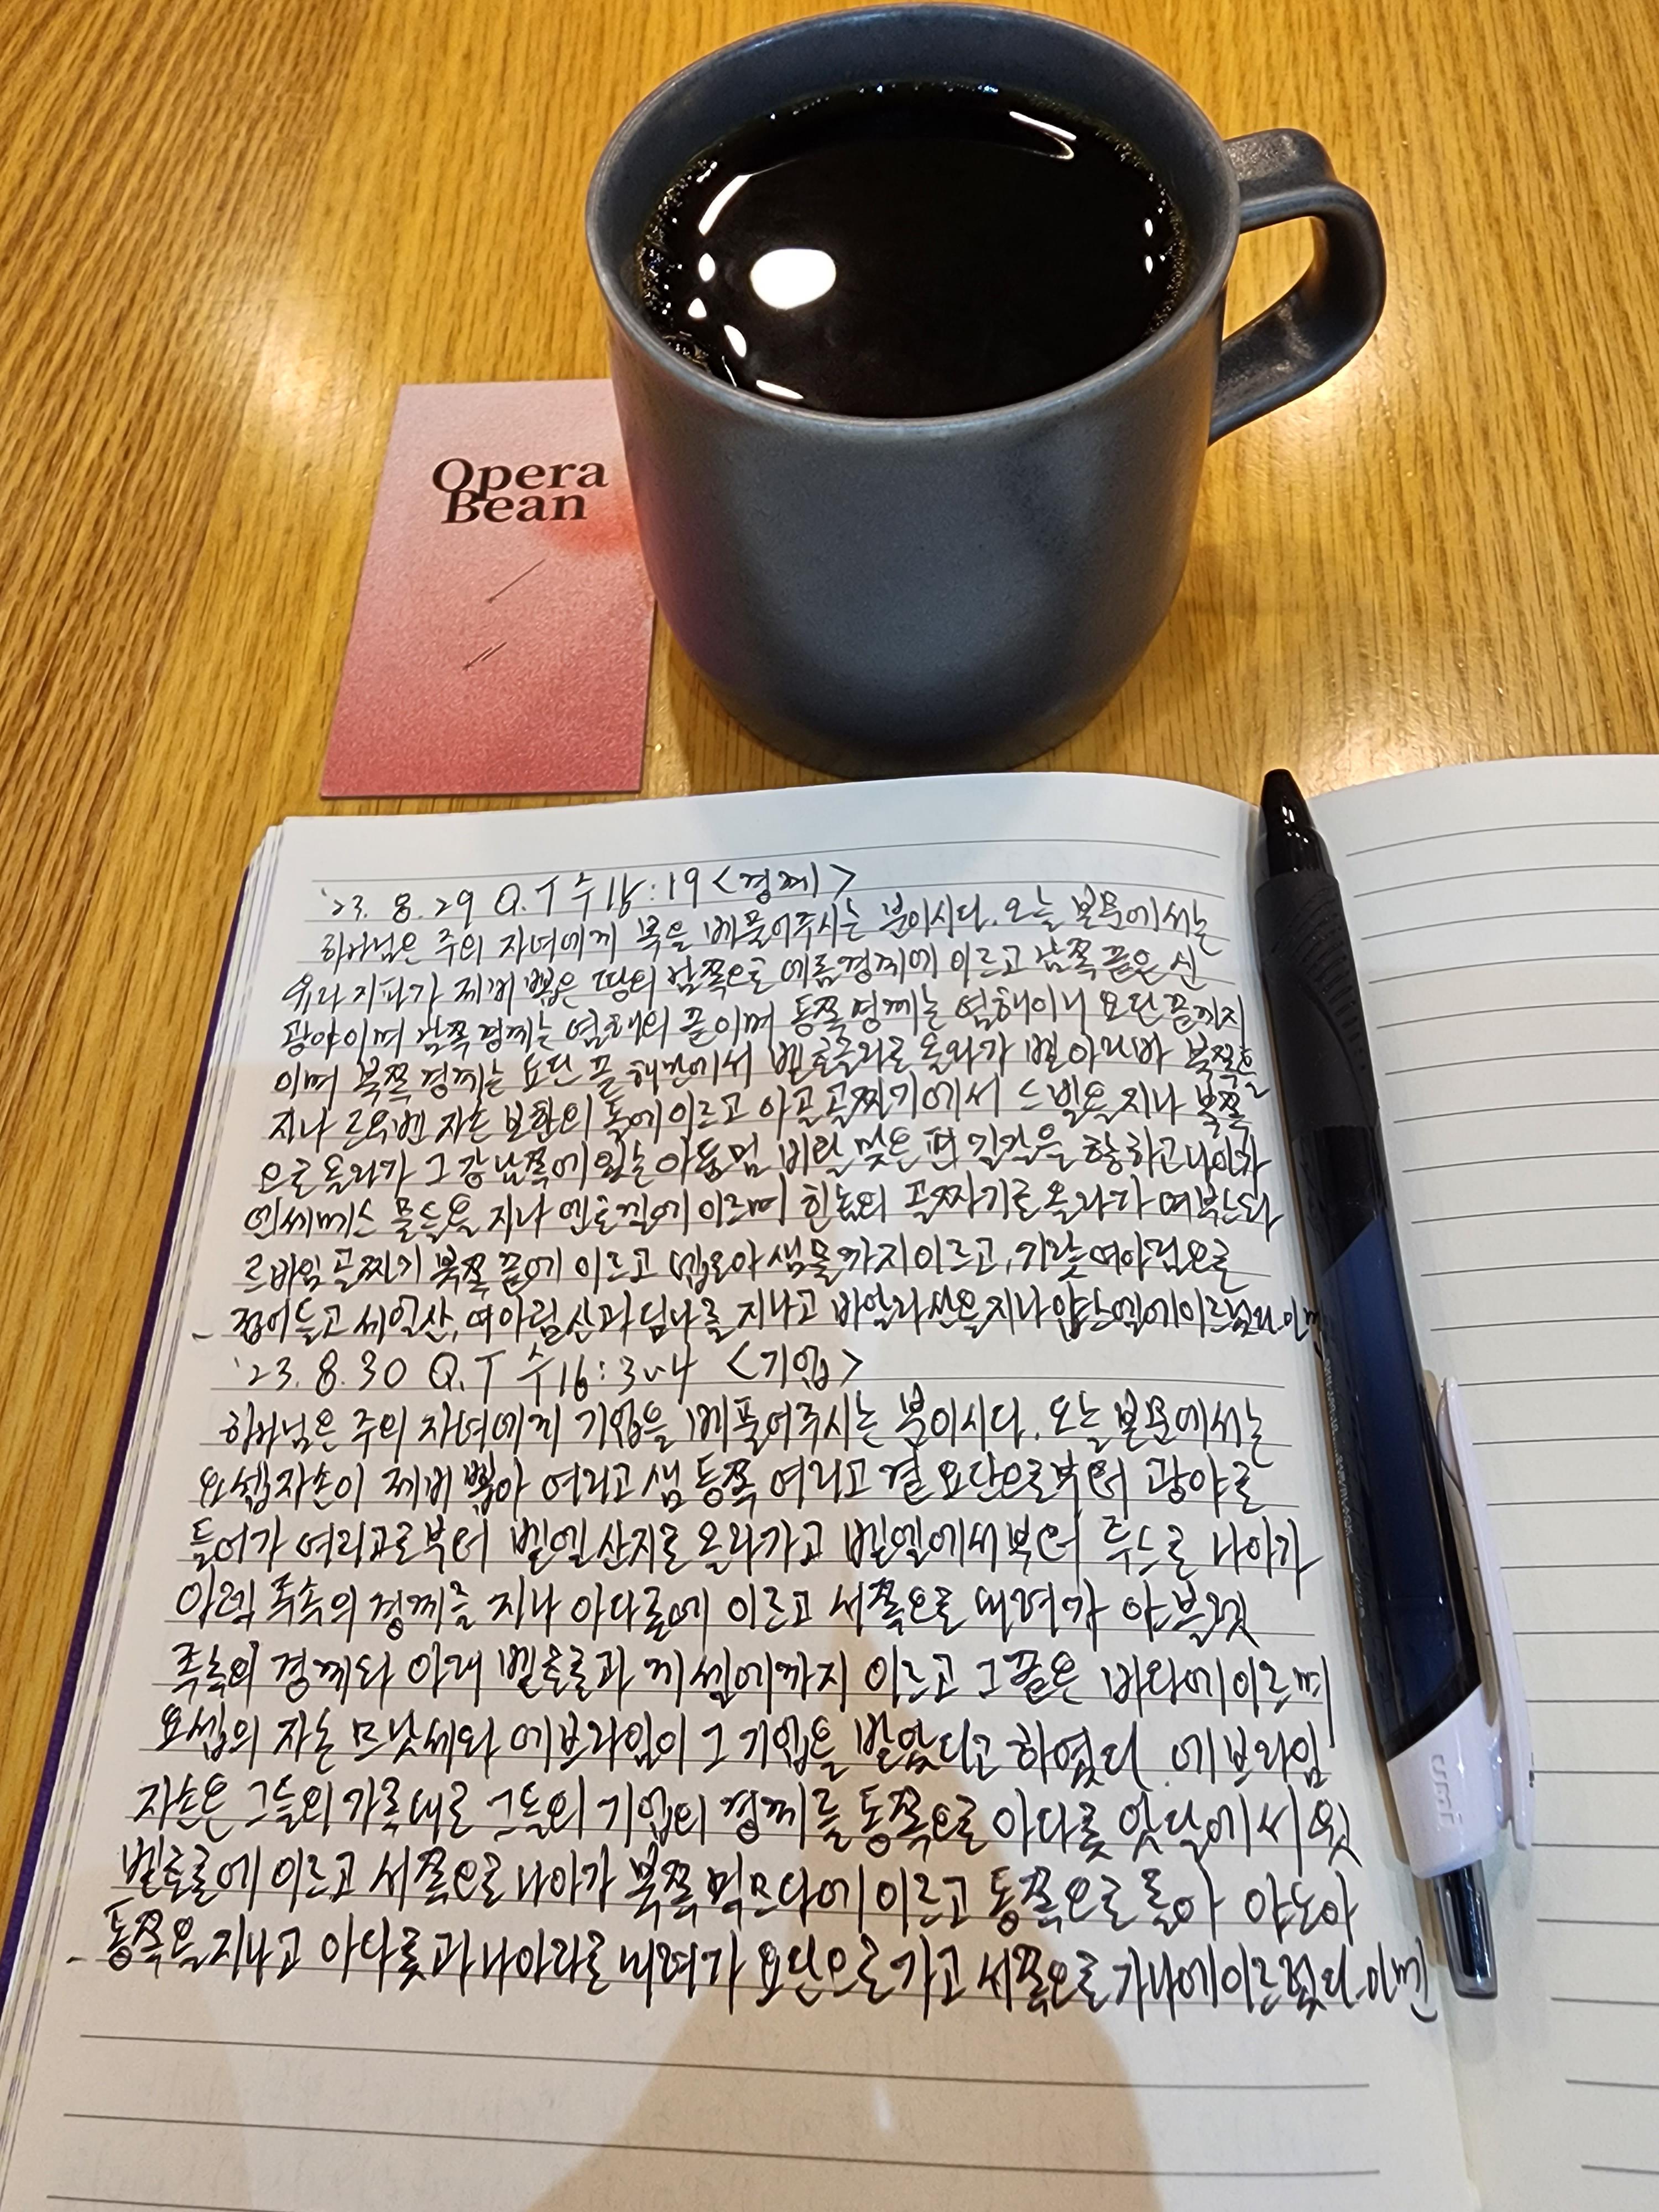 Opera
Bean
'23. 8. 29 Q.T 수 :19 <경계>
하나님은 주의 자녀에게 복을 베풀어주시는 분이시다. 오늘 본문에서는
유다 지파가 제비 뽑은 땅의 남쪽으로 에돔 경계에 이르고 남쪽 끝은 신
광야이며 남쪽 경계는 염해의 끝이며 동쪽 경계는 염해이니 요단 끝까지
이며 북쪽 경계는 요단 끝 해만에서 벧호글라로 올라가 벧 아라바 북쪽을
지나 르우벤 자손 보한의 돌에 이르고 아골 골짜기에서 드빌을 지나 북쪽
으로 올라가 그 강 남쪽에 있는 아둠밈 비탈 맞은 편 길갈을 향하고 나아가
엔세메스 물들을 지나 엔로겔에 이르며 힌놈의 골짜기로 올라가 여부스와
르바임 골짜기 북쪽 끝에 이르고 넵도아 샘물까지 이르고, 기럇여아림으로
접어들고 세일산, 여아림산과 딤나를 지나고 바알라산을 지나 얍느엘에 이르렀다.
'23. 8. 30 Q.T 수16:3~4 <기업>
하나님은 주의 자녀에게 기업을 베풀어주시는 분이시다. 오늘 본문에서는
요셉 자손이 제비 뽑아 여리고 샘 동쪽 여리고 곁 요단으로부터 광야로
들어가 여리고로부터 벧엘 산지로 올라가고 벧엘에서부터 루스로 나아가
아렉 족속의 경계를 지나 아다롯에 이르고 서쪽으로 내려가 야블렛
족속의 경계와 아래 벧호론과 게셀에까지 이르고 그 끝은 바다에 이르며
요셉의 자손 므낫세와 에브라임이 그 기업을 받았다고 하였다. 에브라임
자손은 그들의 가족대로 그들의 기업의 경계를 동쪽으로 아다롯 앗달에서 윗
벧호론에 이르고 서쪽으로 나아가 북쪽 믹므다에 이르고 동쪽으로 돌아 야노아
동쪽을 지나고 아다롯과 나아라로 내려가 요단으로 가고 서쪽으로 가나에 이르렀다. 아멘
umi